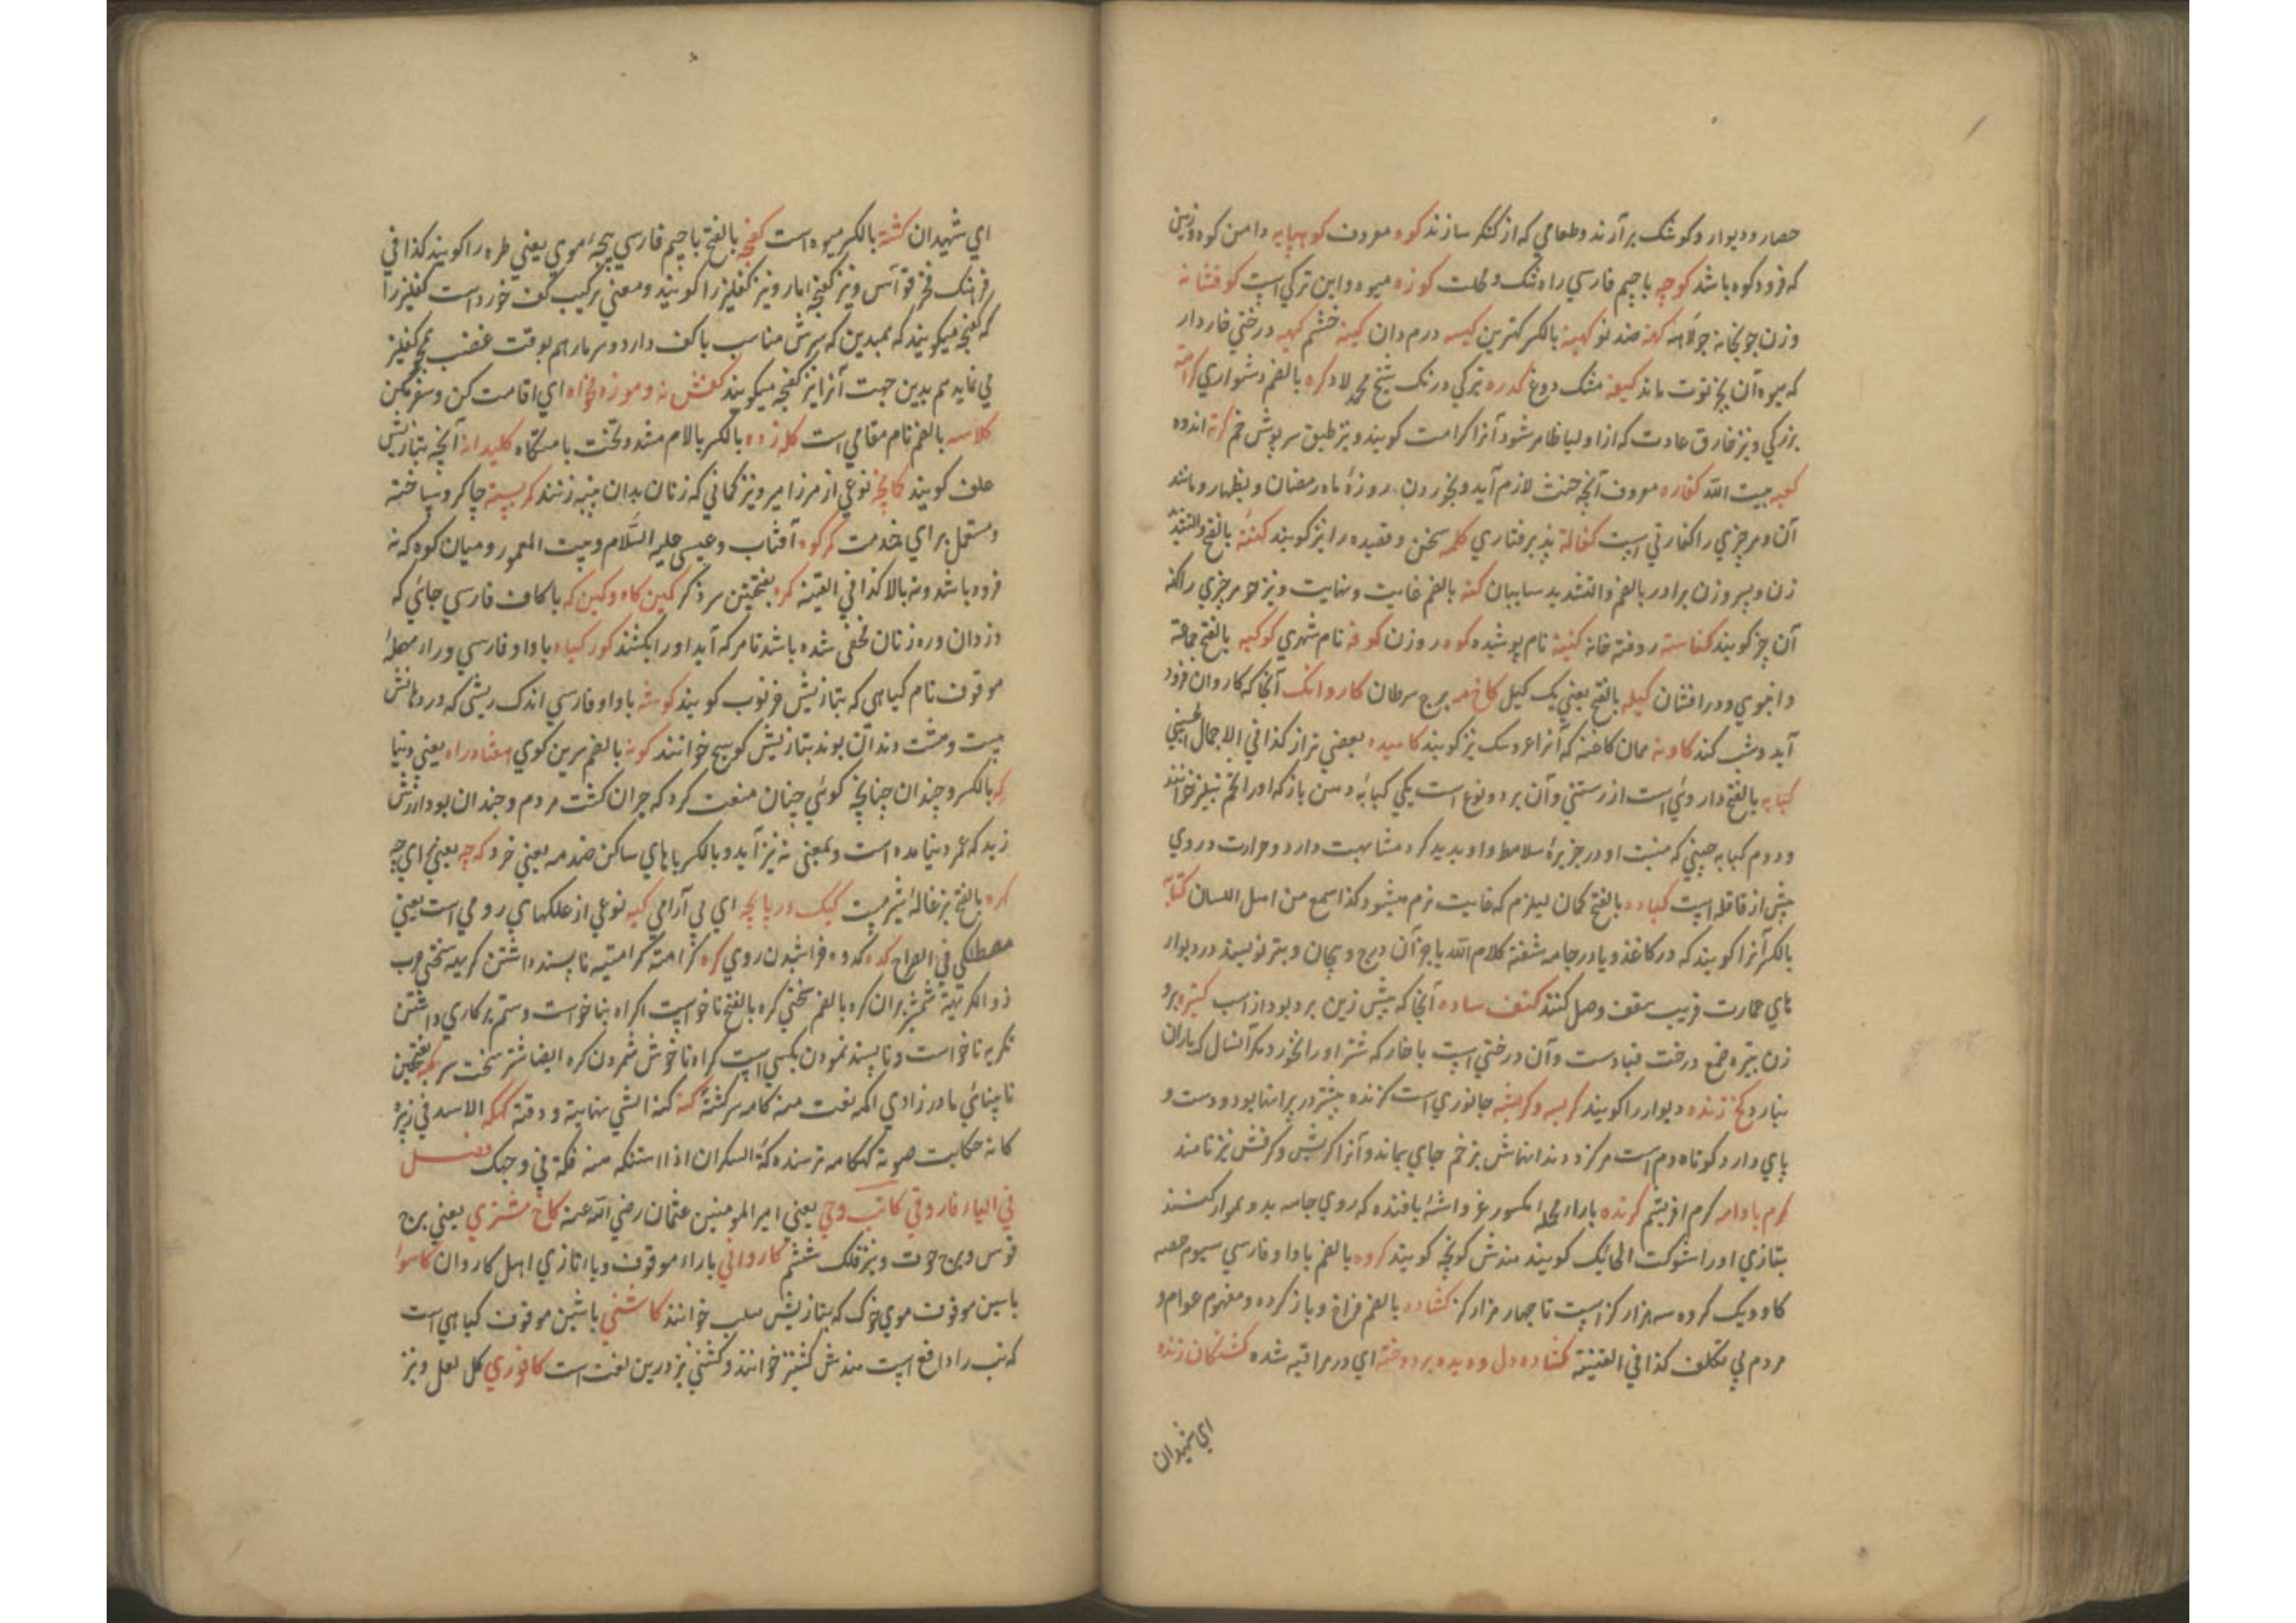 حصار و دیوار و کوشک بر آرند و طعامی که از کنکر سازند کوه معروف کوهپایه دامن کوه و زمین
که فرود کوه باشد کوچه باجیم فارسی راه تنک و محلت کوزه میوه و این ترکی است کوفشانه
وزن جویخانه جولاهه کهنه ضد نو کهینه بالکسر کهترین کیسه درم دان کینه خشم کهیه درختی خاردار
که میوه آن بخ توت ماند کیفه مشک دوغ کدره ترکی درنک شیخ محمد لاد کره بالضم دشواری کرامة
بزرکی و نیز خارق عادت که از اولیا ظاهر شود آنرا کرامت کویند و نیز طبق سرپوش خم کربه اندوه
کعبه بیت الله کفاره معروف آنچه حنث لازم آید و بخوردن روزهٔ ماه رمضان و بظهار و مانند
آن و هر چیزی را کفارتی است کفالة پذیرفتاری کلمه سخن و قصیده را نیز کویند کنة بالفتح والتشدید
زن پسر و زن برادر بالضم والتشدید سایبان کنه بالضم غایت و نهایت و نیز جوهر چیزی را کنه
آن چیز کویند کناسته روفته خانه کنیة نام پوشیده کوه روزن کوفه نام شهری کوکبه بالفتح جماعة
و انبوهی و درافشان کیله بالفتح یعنی یک کیل کاخ مه برج سرطان کاروانک آنجا که کاروان فرود
آید و شب کند کاونه همان کاغنه که آنرا عروسک نیز کویند کامیده بمعنی تراز کذا فی الاجمال الحسینی
کبابه بالفتح داروئی است از رستنی و آن بر دو نوع است یکی کبابهٔ دهن باز که او را تخم نیز خوانند
و دوم کبابه چینی که منبت او در جزیرهٔ سلامط و او بدید کرد مشابهت دارد و حرارت در وی
بیش از قاقله است کباده بالفتح کمان لیزم که غایت نرم میشود کذا اسمع من اهل اللسان کتابة
بالکسر آنرا کویند که در کاغذ و یا در جامه شقة کلام الله یا جز آن درج و پیچان و بتر نویسند در دیوار
های عمارت قریب سقف وصل کنند کتف ساده آنجا که پیش زین بر د بود از اسب کتیره برو
زن بتیره صمغ درخت قتادست و آن درختی است با خار که شتر او را نخورد مکر آنسال که باران
نبارد کخ زنده دیوار را کویند کربسه و کربشه جانوری است کزنده بیشتر در ویرانها بود و دست و
پای دارد کوتاه دم است هر کرا دندانهاش بزخم جای بماند و آنرا کربش و کرفش نیز نامند
کرم بادامه کرم ابریشم کرنده باراء المهمله مکسور غرواشهٔ بافنده که روی جامه بدو هموار کنند
بتازی او را شوکت الحائک کویند هندش کونچه کویند کروه بالضم باواو فارسی سیوم حصه
کاو و یک کروه سه هزار کز است تا چهار هزار کز کشاده بالضم فراخ و باز کرده و مفهوم عوام و
مردم بی تکلف کذا فی القنیة کشاده دل و دیده بردوخته ای در مراقبه شده کشتکان زنده
ای شهیدان
ای شهیدان کشته بالکسر میوه است کفچه بالفتح باجیم فارسی پیچهٔ موی یعنی طره را کویند کذا فی
فرهنک فخر قواس و نیز کفچهٔ مار و نیز کفلیز را کویند و معنی ترکیب کف خورد است کفلیز را
که کفچه میکویند که بمبدین که سرش مناسب با کف دارد و سر مار هم بوقت غضب همچو کفلیز
می نماید هم بدین جهت آنرا نیز کفچه میکویند کفش نه و موزه مخواه ای اقامت کن و سفر مکن
کلاسه بالضم نام مقامی است کله زده بالکسر بالام مشدد تخت بامسکاه کلیدانه آنچه بتازیش
غلق کویند کمانچه نوعی از مزامیر و نیز کمانی که زنان بدان پنبه زنند کمربسته چاکر و ساخته
و مستعمل برای خدمت کمرکوه آفتاب و عیسی علیه السلام و بیت المعمور و میان کوه که نه
فرود باشد و نه بالا کذا فی القنیة کمره بفتحتین سرذکر کمین کاه و کمین که باکاف فارسی جائی که
دزدان و ره زنان مخفی شده باشند تا هر که آید او را بکشند کورکیاه باواو فارسی و راء مهملهٔ
موقوف نام کیاهی که بتازیش خرنوب کویند کوسه باواو فارسی اندک ریشی که در دهانش
بیست و هشت دندان بوند بتازیش کوسج خوانند کونه بالضم سرین کوی هفتاد راه یعنی دنیا
که بالکسر و چندان چنانچه کوئی چنان صنعت کرد که حیران کشت مردم و چندان بود ارزش
زید که عمر دنیا مده است و بمعنی نه نیز آید و بالکسر باهای ساکن ضد مه یعنی خرد که چه یعنی ای چه
کره بالفتح بزغالهٔ شیر میت کیک در پایچه ای بی آرامی کیه نوعی از علکهای رومی است یعنی
مصطکی فی الصراح کده کدوه خراشیدن روی کره کرامة کرامتیه ناپسند داشتن کریهه سختی حرب
ذو الکریهة شمشیر بران کره بالضم سختی کره بالفتح ناخواست اکراه بناخواست و ستم بر کاری داشتن
تکریه ناخواست و ناپسند نمودن بکسی است کراه ناخوش شمردن کره ایضا شتر سخت سر کمه بفتحتین
نابینائی مادرزادی اکمه نعت منه کامه سرکشتة کنه کنه الشی نهایته و وقته کهکه الاسد فی زئیره
کانه حکایت صوته کهکامه ترسنده کهّ السکران اذا استنکه منه فکه فی وجهک فصل
فی الیاء فاروقی کاتب وحی یعنی امیر المومنین عثمان رضی الله عنه کاخ مشتری یعنی برج
قوس و برج حوت و نیز فلک ششم کاروانی باراء موقوف و با تازی اهل کاروان کاسموا
باسین موقوف موی خوک که بتازیش هلب خوانند کاشنی باشین موقوف کیاهی است
که تب را دافع است هندش کشنیز خوانند و کشنی نیز درین لغت است کافوری کل لعل و نیز